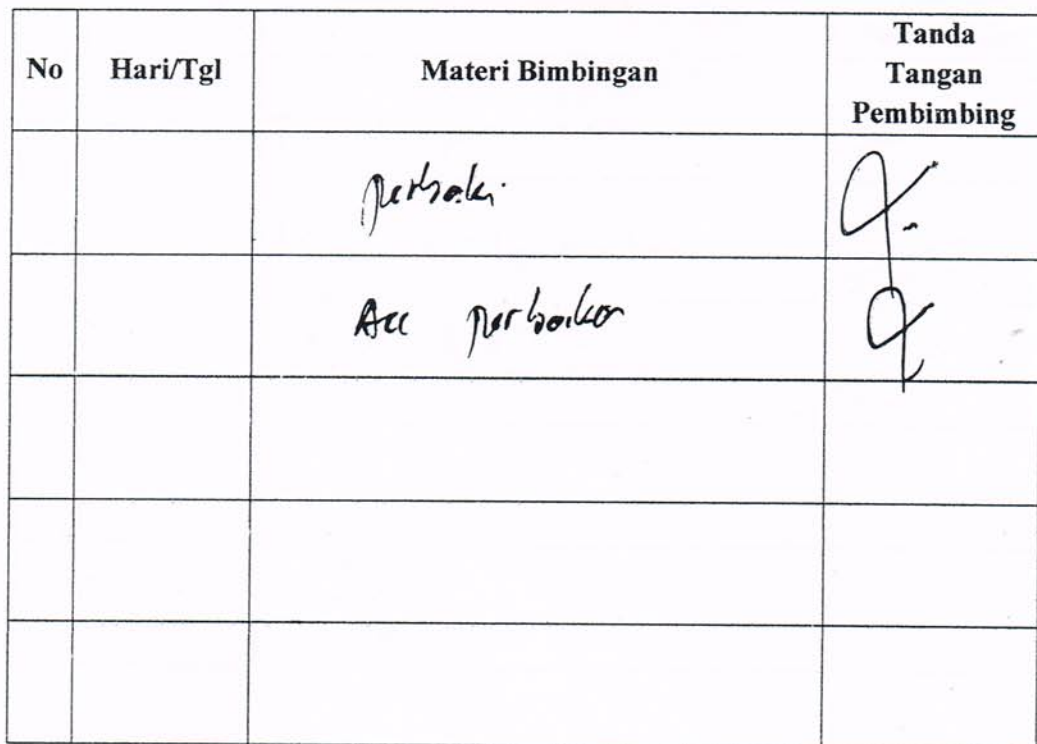 No Hari/Tgl Materi Bimbingan Tanda
Tangan
Pembimbing
perbaiki
Acc perbaikan